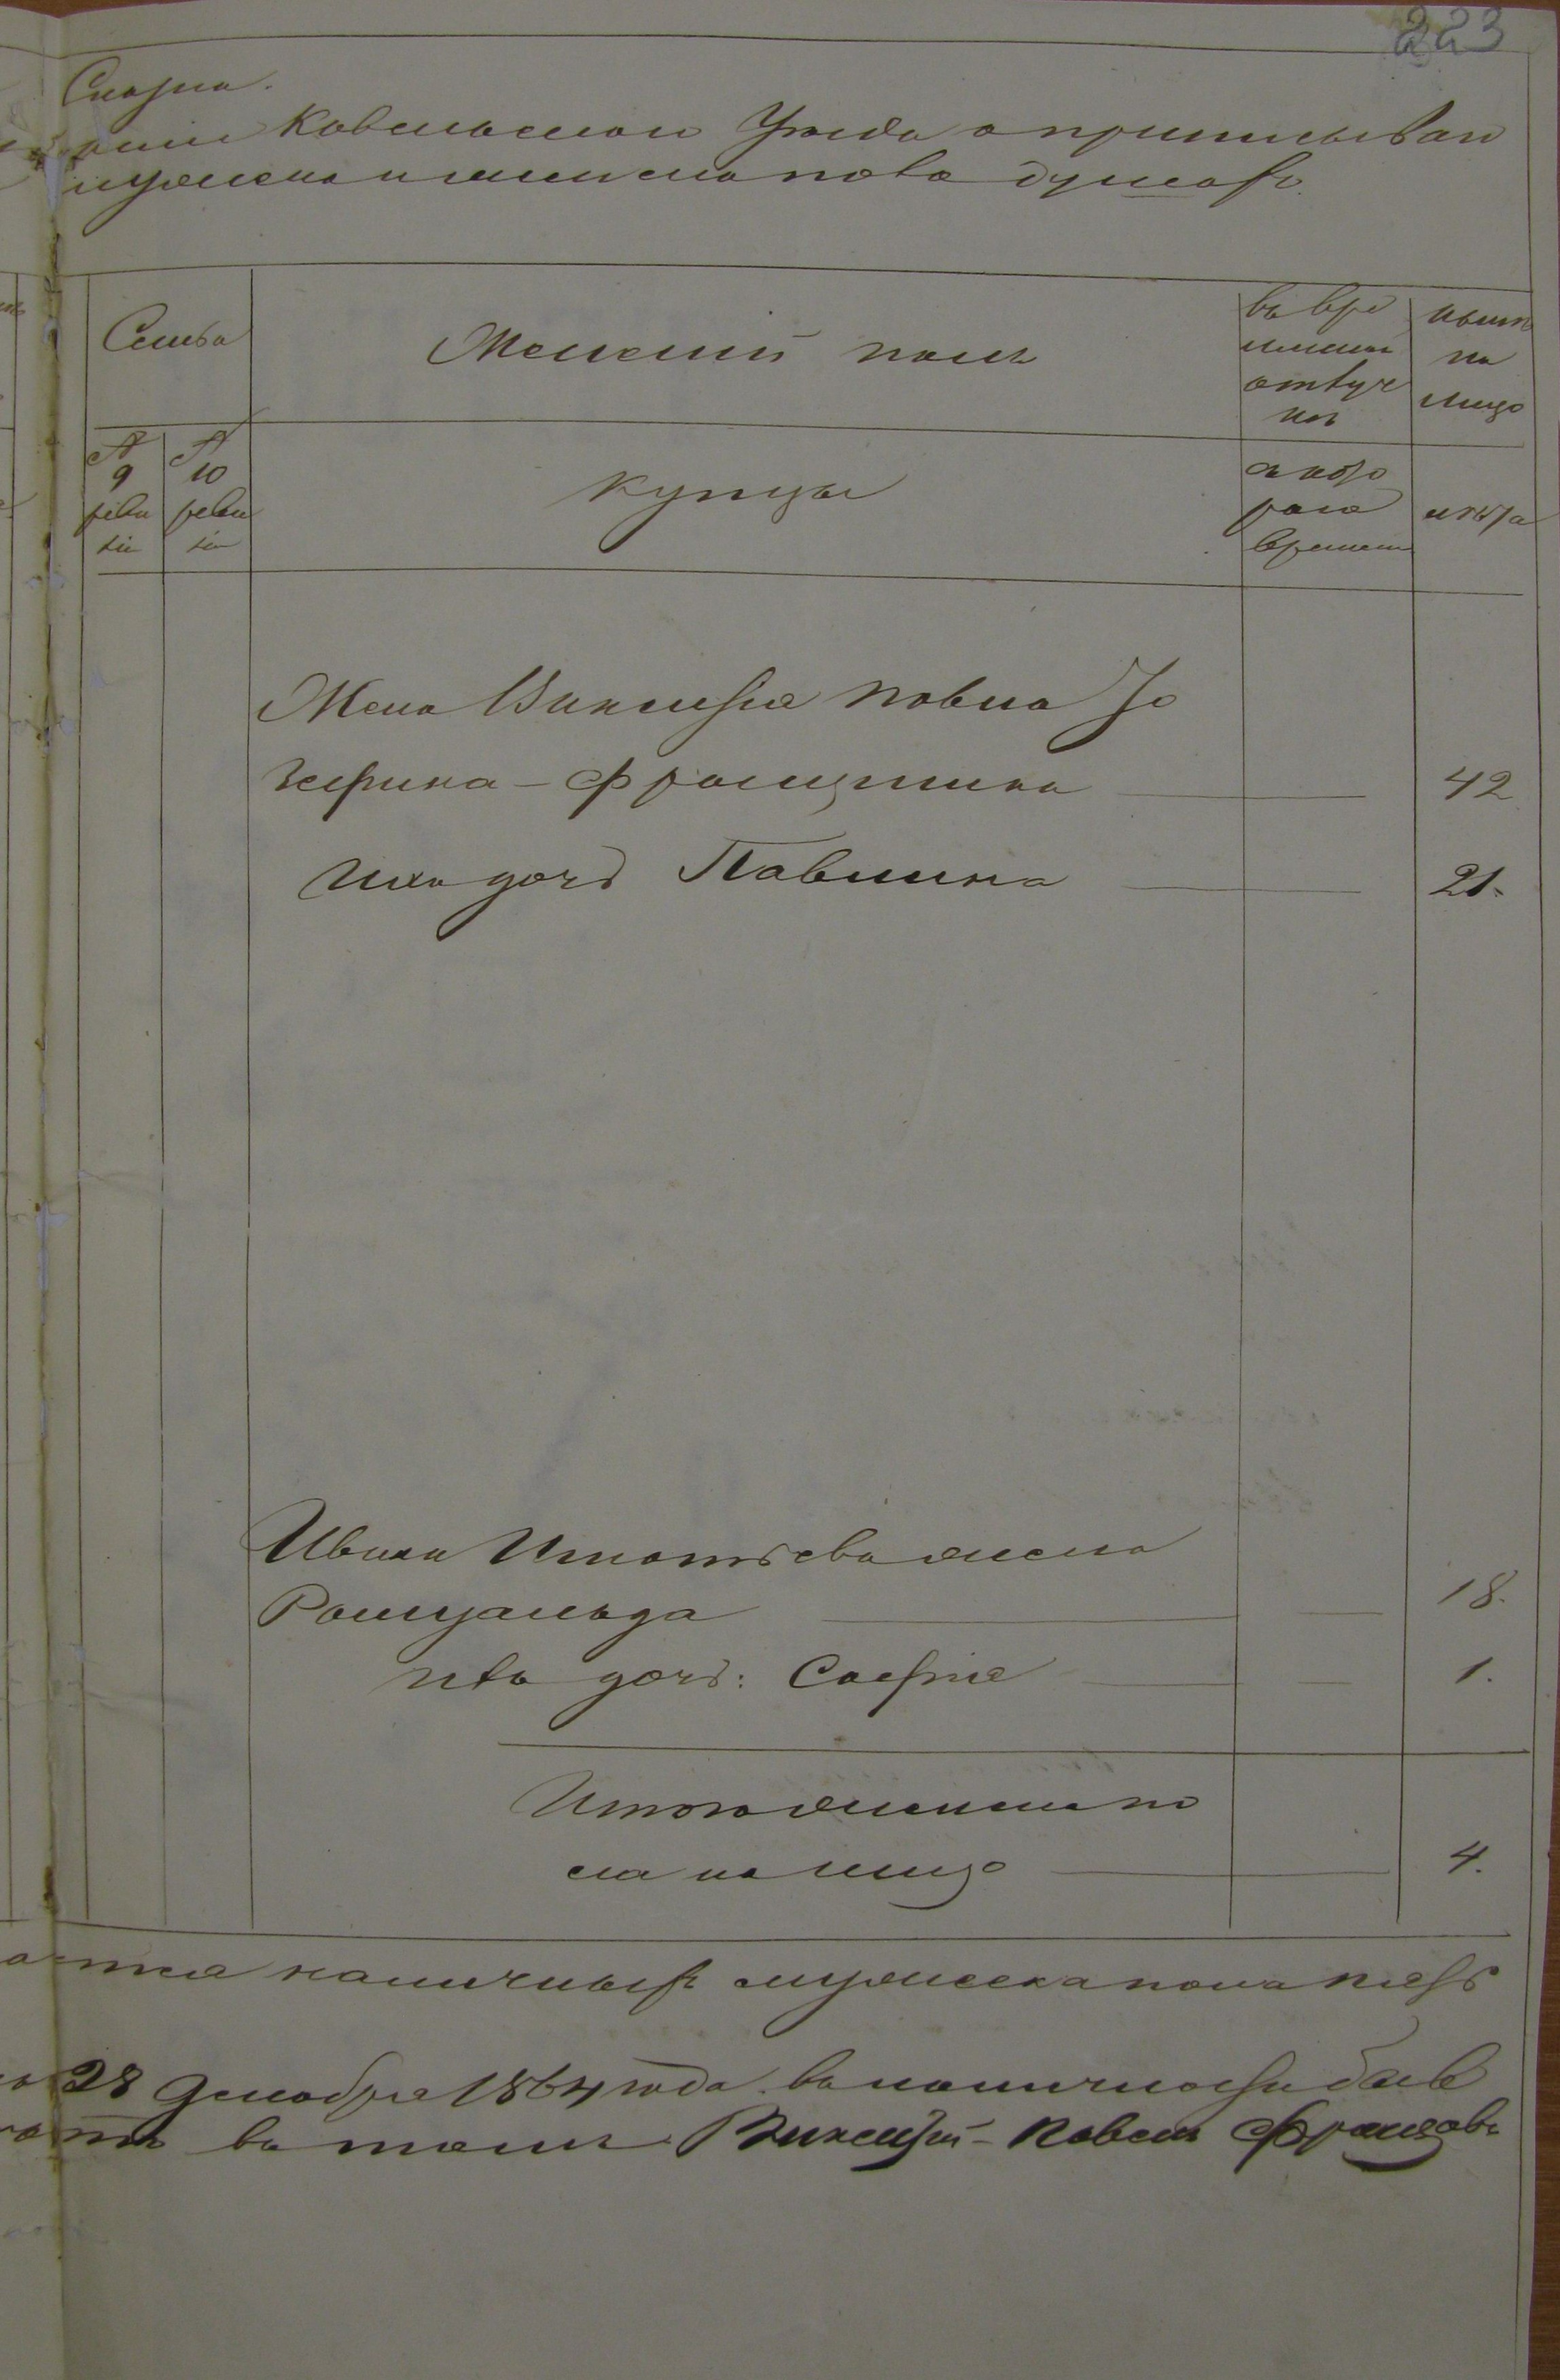 223
Сказка.
Ковельскои Уезда о приписыван
мужеска и женска пола душахъ.
Семья
Женскій полъ
въ вре
менной
отлуч
кѣ
нынѣ
на
лицо
№
9
реви
зіи
№
10
реви
зіи
Купцы
съ кото
раго
времени
лѣта
Жена Викентія Павла Іо
зефина - Францишка
42
Ихъ дочь Павлина
21.
Ивана Игнатьева жена
Ромуальда
18.
ихъ дочь: Софія
1.
Итого женска по
ла на лицо
4.
наличныхъ мужеска пола пять
28 Декабря 1864 года. въ наличности
въ томъ Викентій - Павелъ Францовъ